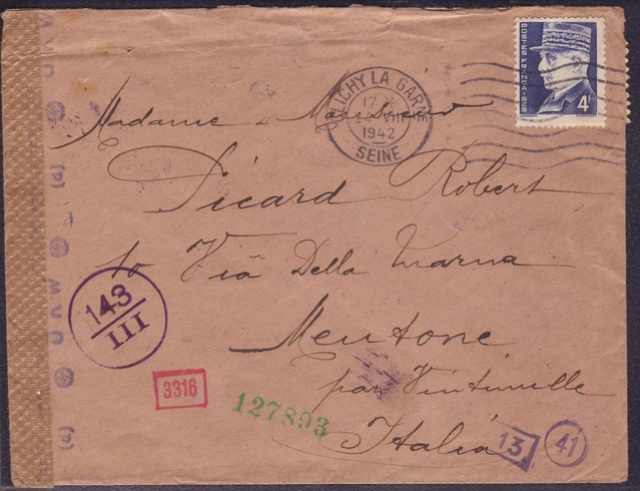 POSTES FRANÇAISES
4F
CLICHY LA GARENNE
17
1942
SEINE
Madame & Monsieur
Sicard Robert
10 Via Della Marna
Mentone
par Vintimille
Italia
143
III
3316
127893
13
41
O.K.W
(d)
O.K.W
(d)